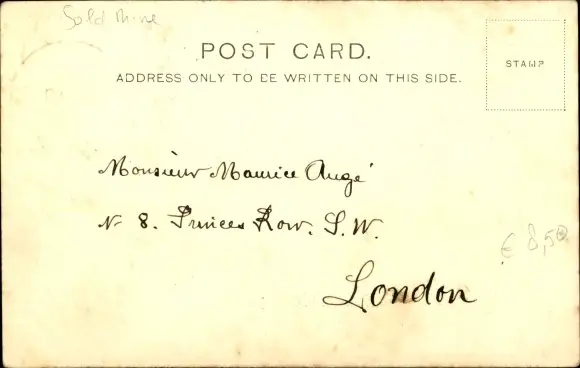 Gold Mine
POST CARD.
ADDRESS ONLY TO BE WRITTEN ON THIS SIDE.
STAMP
Monsieur Maurice Augé
N° 8. Princes Row. S.W.
London
€ 8,50